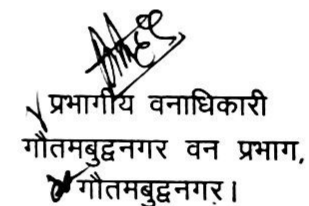 प्रभागीय वनाधिकारी
गौतमबुद्वनगर वन प्रभाग,
गौतमबुद्वनगर।